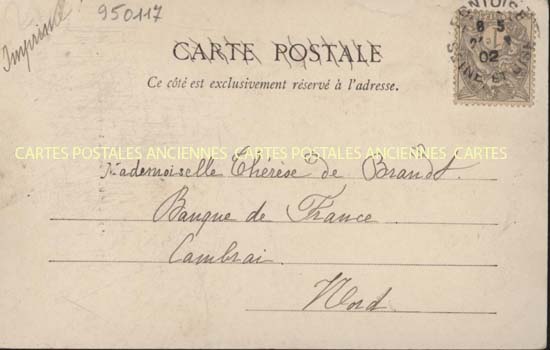 950117
Imprimé
CARTE POSTALE
Ce côté est exclusivement réservé à l'adresse.
PONTOISE
8 5
02
SEINE-ET-OISE
CARTES POSTALES ANCIENNES CARTES POSTALES ANCIENNES CARTES
Mademoiselle Thérèse de Brandt.
Banque de France
Cambrai.
Nord.